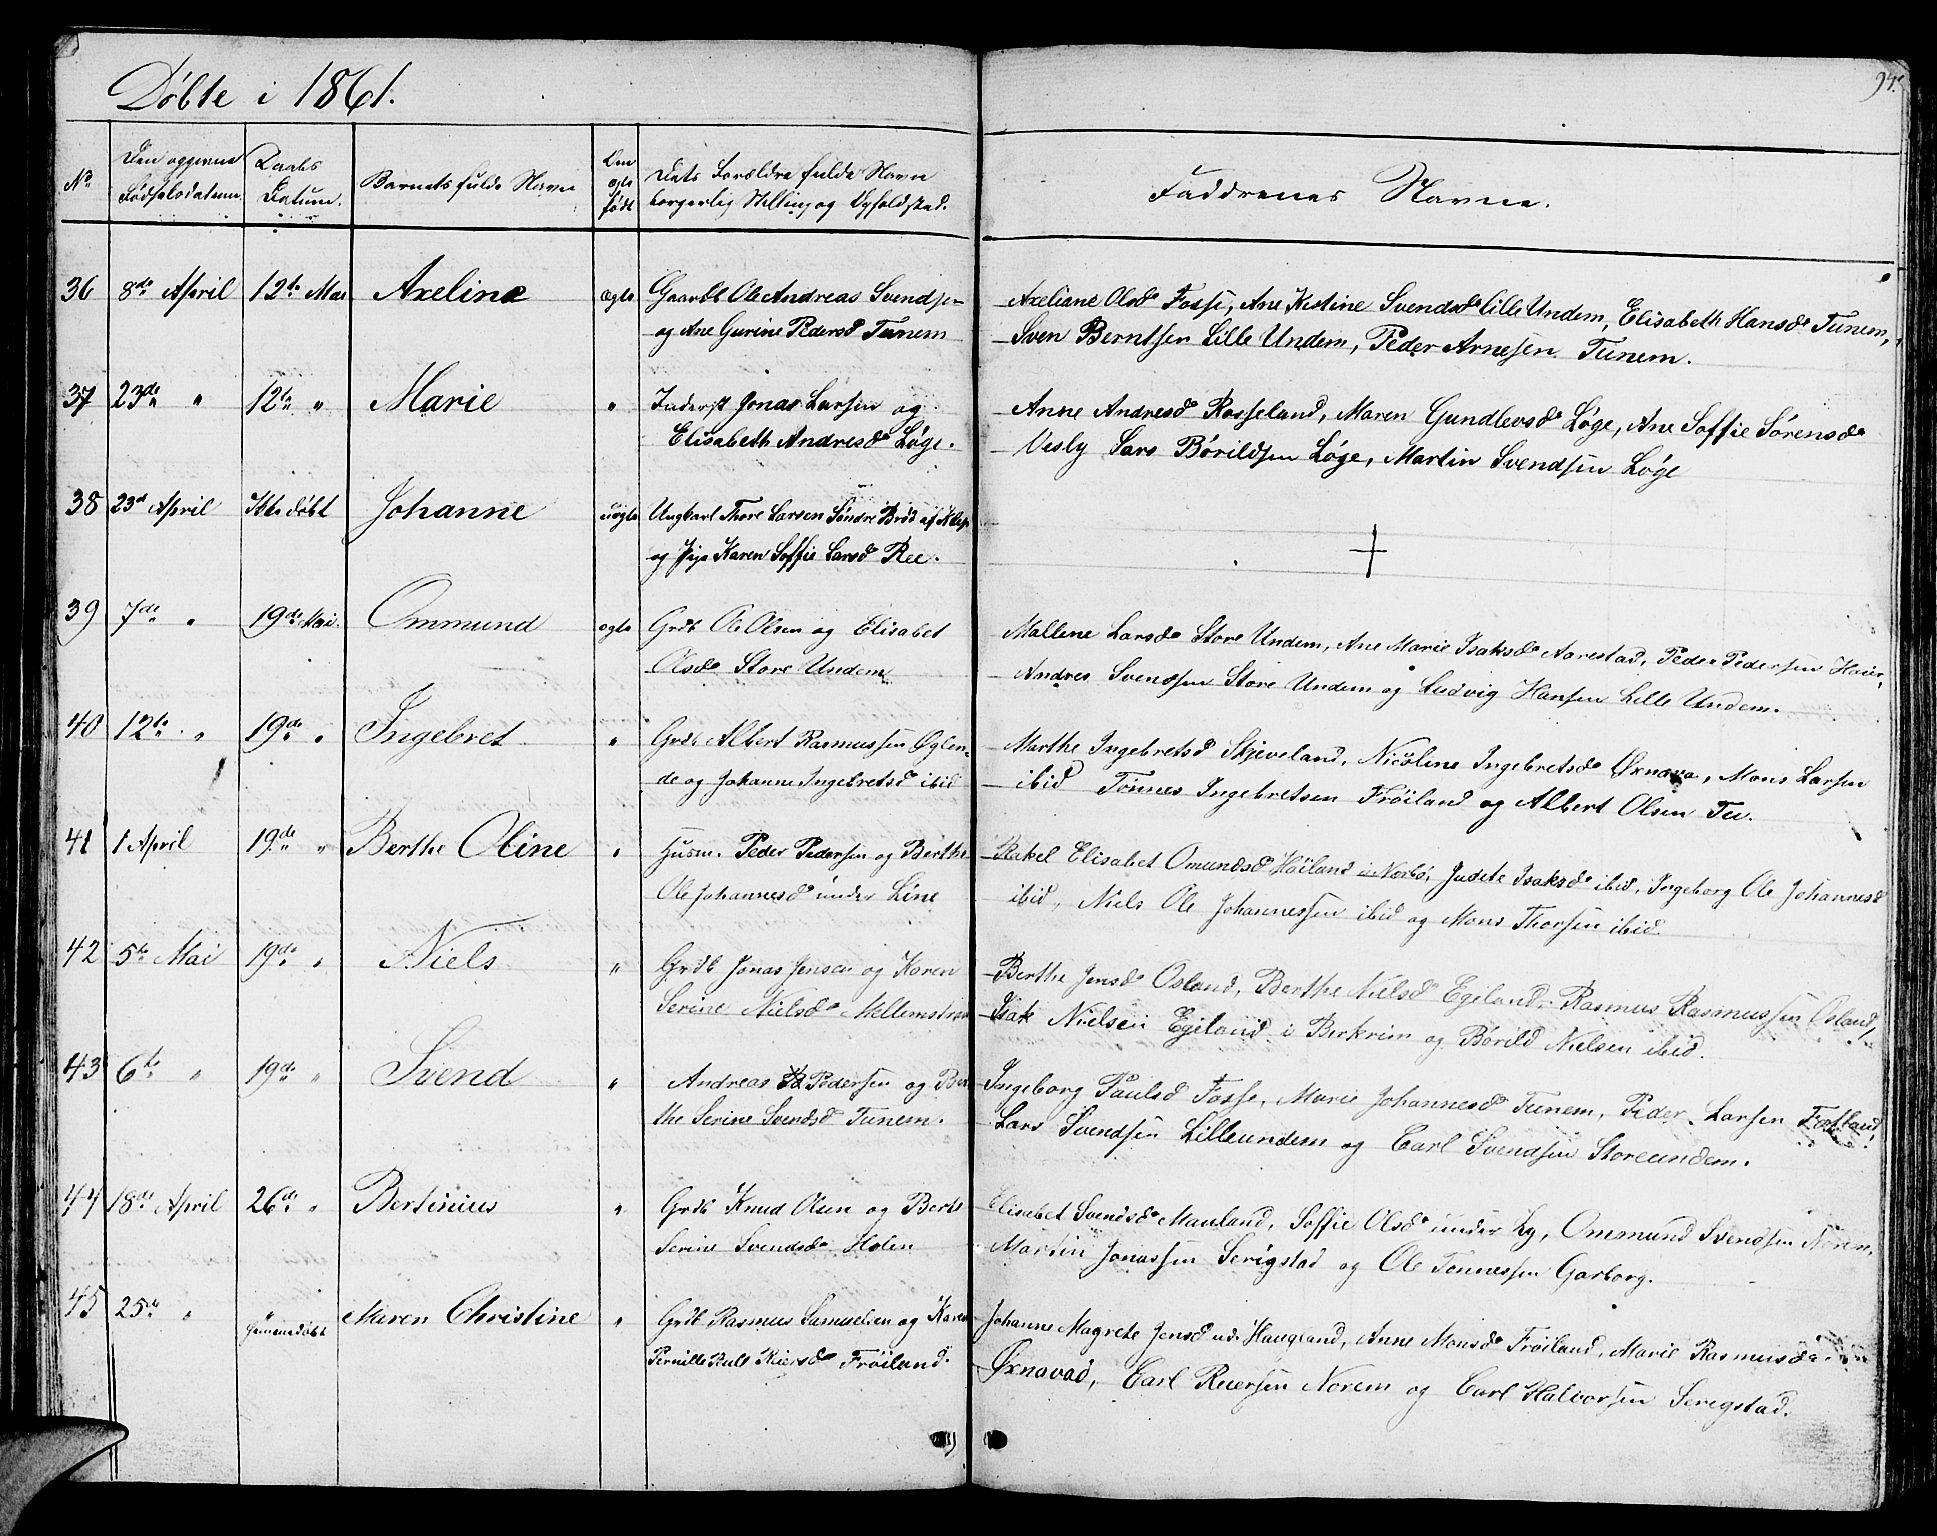 Døbte i 1861.
94.
No. Den opgivne Fødselsdatum. Daabs Datum. Barnets fulde Navn Om ægte født Dets Forældre fulde Navn borgerlig Stilling og Opholdsted. Faddrenes Navne.
36 8de April 12te Mai Axeline ægte Gaardb Ole Andreas Svendsen
og Ane Gurine Pedersd Tunem
Axeliane Olsdr Fosse, Ane Kistine Svendsdr Lille Undem, Elisabeth Hansdr Tunem,
Sven Berntsen Lille Undem, Peder Arnesen Tunem.
37 23de " 12te " Marie " Inderst Jonas Larsen og
Elisabeth Andresdr Løge.
Anne Andresdr Rosseland, Maren Gundlevsdr Løge, Ane Soffie Sørensdr
Vesly Lars Børildsen Løge, Martin Svendsen Løge
38 23de April Ikke døbt Johanne uægte Ungkarl Thore Larsen Søndre Brød af Klep
og Pige Karen Soffie Larsdr Ree.
39 7de " 19de Mai. Ommund ægte Grdb Ole Olsen og Elisabet
Olsdr Store Undem
Mallene Larsdr Store Undem, Ane Marie Isaksdr Aarestad, Peder Pedersen
Andres Svendsen Store Undem og Ludvig Hansen Lille Undem.
40 12te " 19de " Ingebret " Grdb Albert Rasmussen Øglen-
de og Johanne Ingebretsd ibid
Marthe Ingebretsd Skjeveland, Nicoline Ingebretsdr Ørnava, Mons Larsen
ibid Tønnes Ingebretsen Frøiland og Albert Olsen Tu.
41 1 April 19de " Berthe Oline " Husm. Peder Pedersen og Berthe
Ole Johannesdr under Line
Rakel Elisabet Omundsd Høiland i Norbø, Judete Isaksdr ibid, Ingeborg Ole Johannesd
ibid, Niels Ole Johannessen ibid og Mons Thorsen ibid.
42 5te Mai 19de " Niels " Grdb Jonas Jensen og Karen
Serine Nielsdr Mellemstrand
Berthe Jensdr Osland, Berthe Nielsdr Egeland, Rasmus Rasmussen Osland,
Isak Nielsen Egeland i Berkrim og Børild Nielsen ibid.
43 6te " 19de " Svend " Andreas Pedersen og Ber
the Serine Svendsd Tunem.
Ingeborg Paulsd Fosse, Marie Johannesdr Tunem, Peder Larsen
Lars Svendsen Lilleundem og Carl Svendsen Storeundem.
44 18de April 26de " Bertinius " Grdb Knud Olsen og Berte
Serine Svendsdr Holen
Elisabet Svendsdr Mauland, Soffie Olsdr under Ly, Ommund Svendsen Noren,
Martin Jonassen Serigstad og Ole Tønnessen Garborg.
45 25de " " Maren Christine " Grdb Rasmus Samuelsen og Karen
Pernille Reiersdr Frøiland.
Johanne Magrete Jensd Haugland, Anne Monsdr Frøiland, Marie Rasmusdr
Ørnavad, Carl Reiersen Norem og Carl Halvorsen Serigstad.